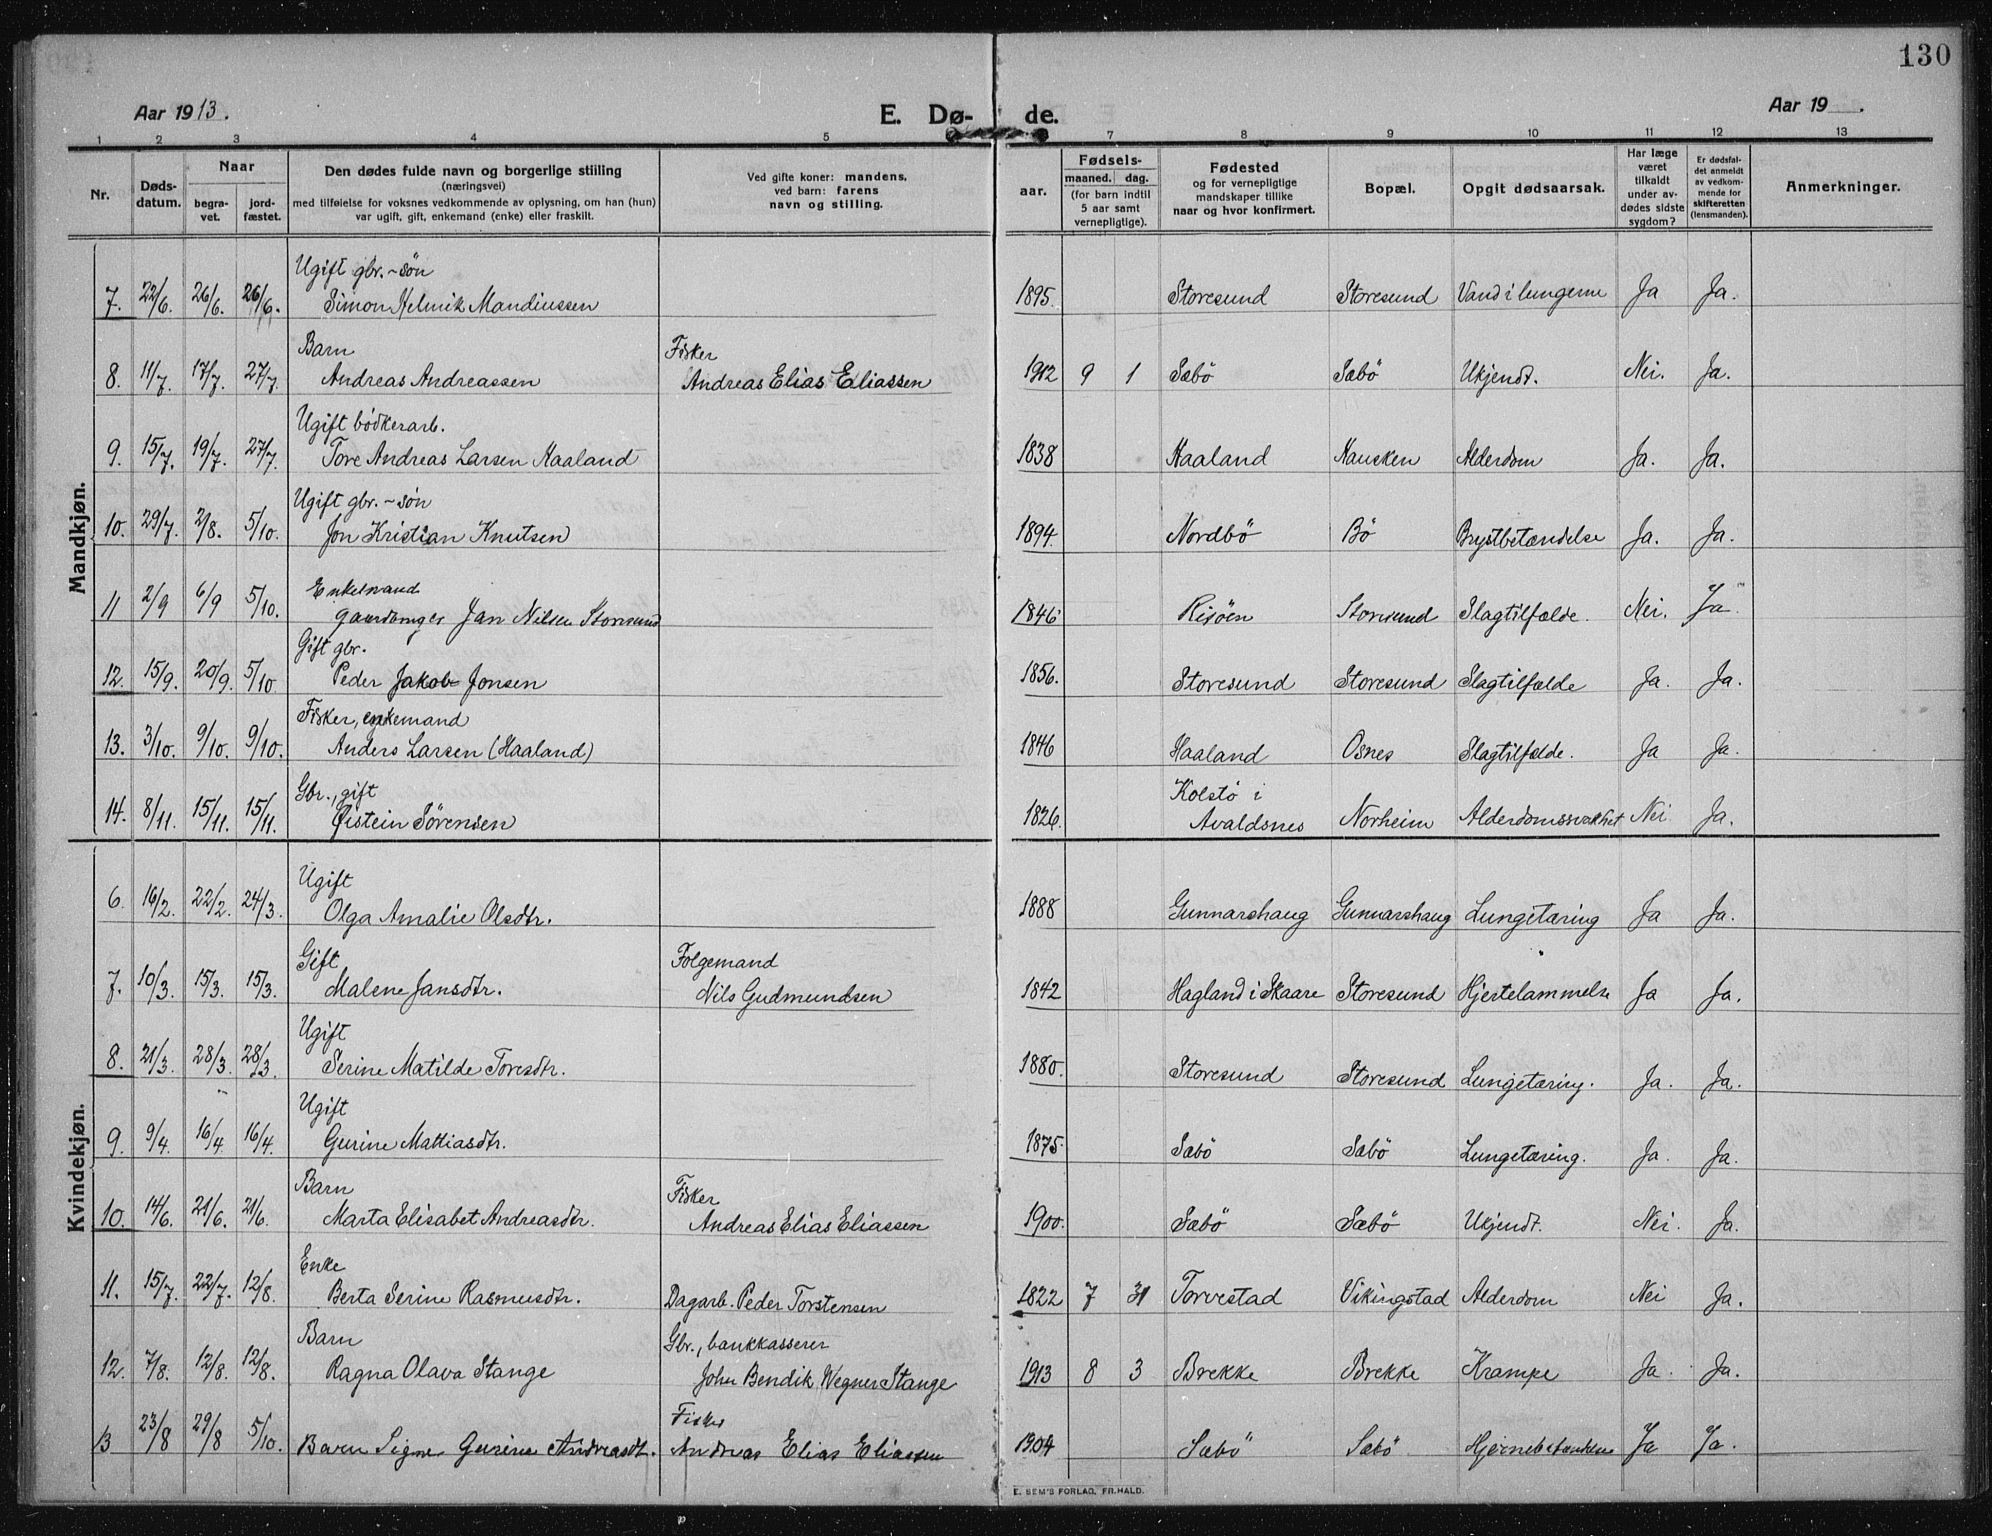 130
Aar 1913.
E. Dø- de.
Aar 19 .
1 2 3 4 5 7 8 9 10 11 12 13
Nr. Døds-datum. Naar begra-vet. jord-fæstet. Den dødes fulde navn og borgerlige stiiling (næringsvei) med tilføielse for voksnes vedkommende av oplysning, om han (hun) var ugift, gift, enkemand (enke) eller fraskilt. Ved gifte koner: mandens, ved barn: farens navn og stilling. aar. Fødsels- maaned. dag. (for barn indtil 5 aar samt vernepligtige). Fødested og for vernepligtige mandskaper tillike naar og hvor konfirmert. Bopæl. Opgit dødsaarsak. Har læge været tilkaldt under av-dødes sidste sygdom? Er dødsfal-det anmeldt av vedkom-mende for skifteretten (lensmanden). Anmerkninger.
Mandkjøn.
Ugift gbr.-søn
7. 22/6. 26/6. 26/6. Simon Helmik Mandiussen 1895. Storesund Storesund Vand i lungerne Ja Ja.
Barn Fisker
8. 11/7. 17/7. 27/7. Andreas Andreassen Andreas Elias Eliassen 1912 9 1 Sæbö Sæbö Ukjendt. Nei. Ja.
Ugift bödkerarb.
9. 15/7. 19/7. 27/7. Tore Andreas Larsen Haaland 1838 Haaland Hausken Alderdom Ja. Ja.
Ugift gbr.-søn
10. 29/7. 2/8. 5/10. Jon Kristian Knutsen 1894. Nordbö Bö Brystbetændelse Ja. Ja.
Enkemand
11 2/9 6/9 5/10. gaardbruger Jan Nilsen Storesund 1846 Risöen Storesund Slagtilfælde. Nei. Ja
Gift gbr.
12. 15/9. 20/9. 5/10 Peder Jakob Jonsen 1856. Storesund Storesund Slagtilfælde Ja. Ja.
Fisker, enkemand
13. 3/10. 9/10. 9/10. Anders Larsen (Haaland) 1846 Haaland Osnes Slagtilfælde. Ja Ja.
Gbr., gift Kolstö i
14. 8/11. 15/11. 15/11. Øistein Sørensen 1826. Avaldsnes Norheim Alderdomssvækket Nei Ja.
Kvindekjøn.
Ugift
6. 16/2. 22/2. 24/3. Olga Amalie Olsdtr. 1888 Gunnarshaug Gunnarshaug Lungetæring Ja Ja.
Gift Følgemand
7. 10/3. 15/3. 15/3. Malene Jansdtr. Nils Gudmundsen 1842 Hagland i Skaare Storesund Hjertelammelse Ja Ja.
Ugift
8. 21/3. 28/3. 28/3. Serine Matilde Toresdtr. 1880. Storesund Storesund Lungetæring. Ja. Ja.
Ugift
9. 9/4. 16/4 16/4. Gurine Mattiasdtr. 1875. Sæbö Sæbö Lungetæring. Ja. Ja.
Barn Fisker
10. 14/6. 21/6. 21/6. Marta Elisabet Andreasdtr. Andreas Elias Eliassen 1900. Sæbö Sæbö Ukjendt. Nei. Ja.
Enke
11. 15/7. 22/7. 12/8. Berta Serine Rasmusdtr. Dagarb. Peder Torstensen 1822 7 31 Torvestad Vikingstad Alderdom Nei Ja.
Barn Gbr., bankkasserer
12. 7/8. 12/8. 12/8. Ragna Olava Stange John Bendik Wegner Stange 1913 8 3 Brekke Brekke Krampe Ja. Ja.
Fisker
13 23/8 29/8 5/10. Barn Signe Gurine Andreasdt. Andreas Elias Eliassen 1904 Sæbö Sæbö Hjernebetændelse Ja Ja.
E. SEM'S FORLAG, FR.HALD.